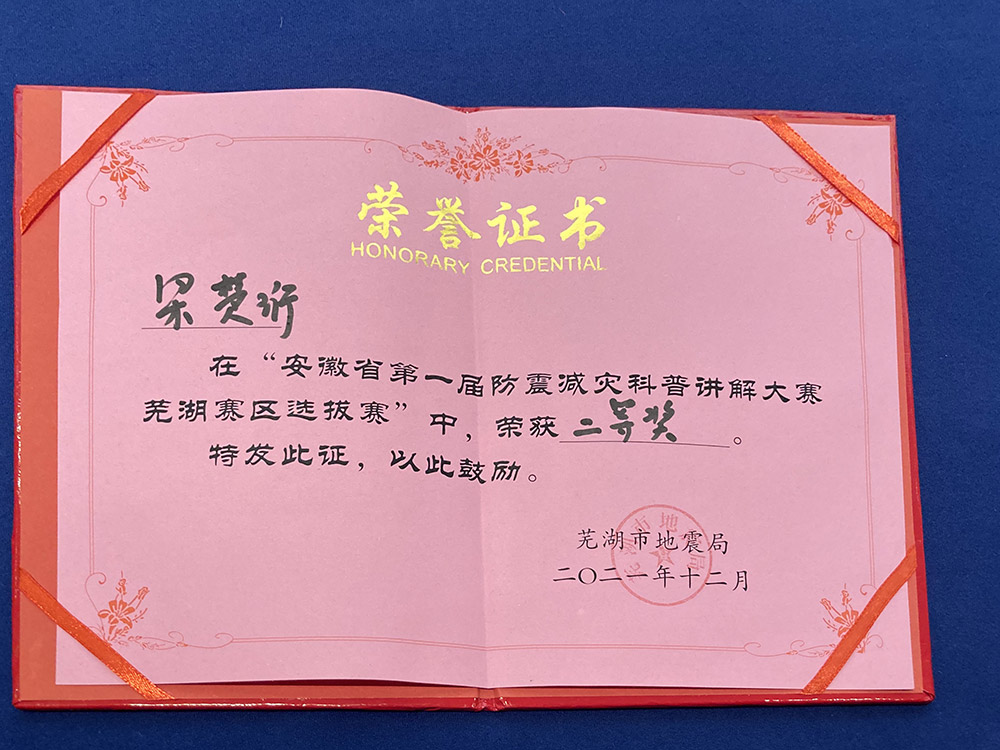 荣誉证书
HONORARY CREDENTIAL
梁焚珩
在“安徽省第一届防震减灾科普讲解大赛
芜湖赛区选拔赛”中，荣获二等奖。
特发此证，以此鼓励。
芜湖市地震局
二〇二一年十二月